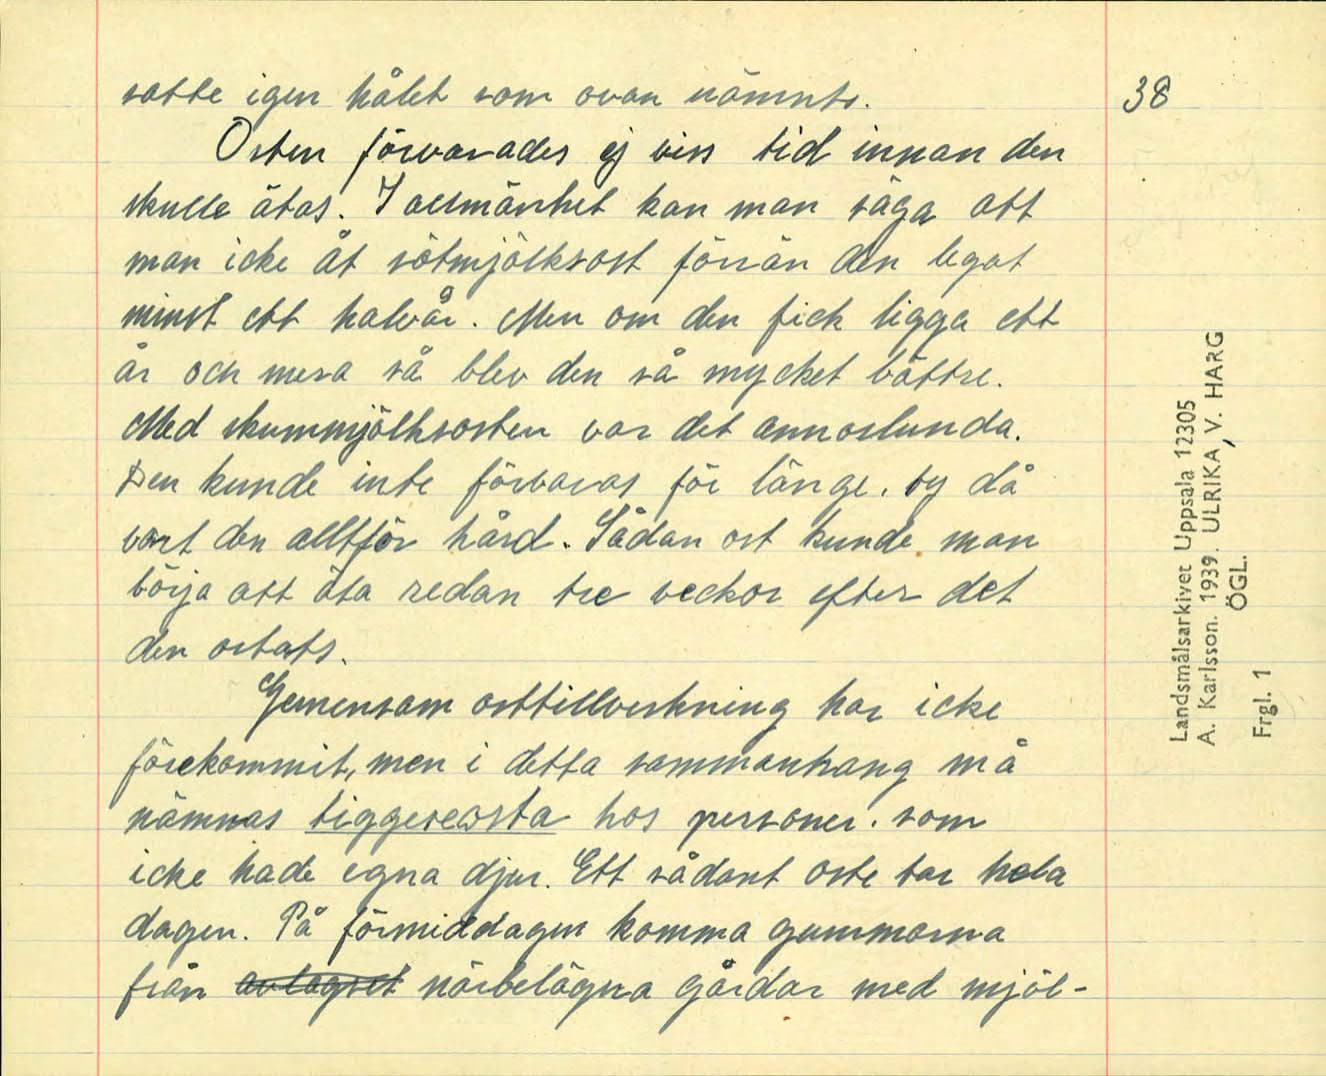 satte igen hålet som ovan nämnts.
38
Osten förvarades ej viss tid innan den
skulle ätas. I allmänhet kan man säga att
man icke åt sötmjölksost förrän den legat
minst ett halvår. Men om den fick ligga ett
år och mera så blev den så mycket bättre.
Med skummjölksosten var det annorlunda.
Den kunde inte förvaras för länge, ty då
vart den alltför hård. Sådan ost kunde man
börja att äta redan tre veckor efter det
den ostats.
Gemensam osttillverkning har icke
förekommit, men i detta sammanhang må
nämnas tiggereosta hos personer, som
icke hade egna djur. Ett sådant oste tar hela
dagen. På förmiddagen komma gummorna
från avlägset närbelägna gårdar med mjöl-
Landsmålsarkivet Uppsala 12305
A. Karlsson. 1939. ULRIKA, V. HARG
ÖGL.
Frgl. 1